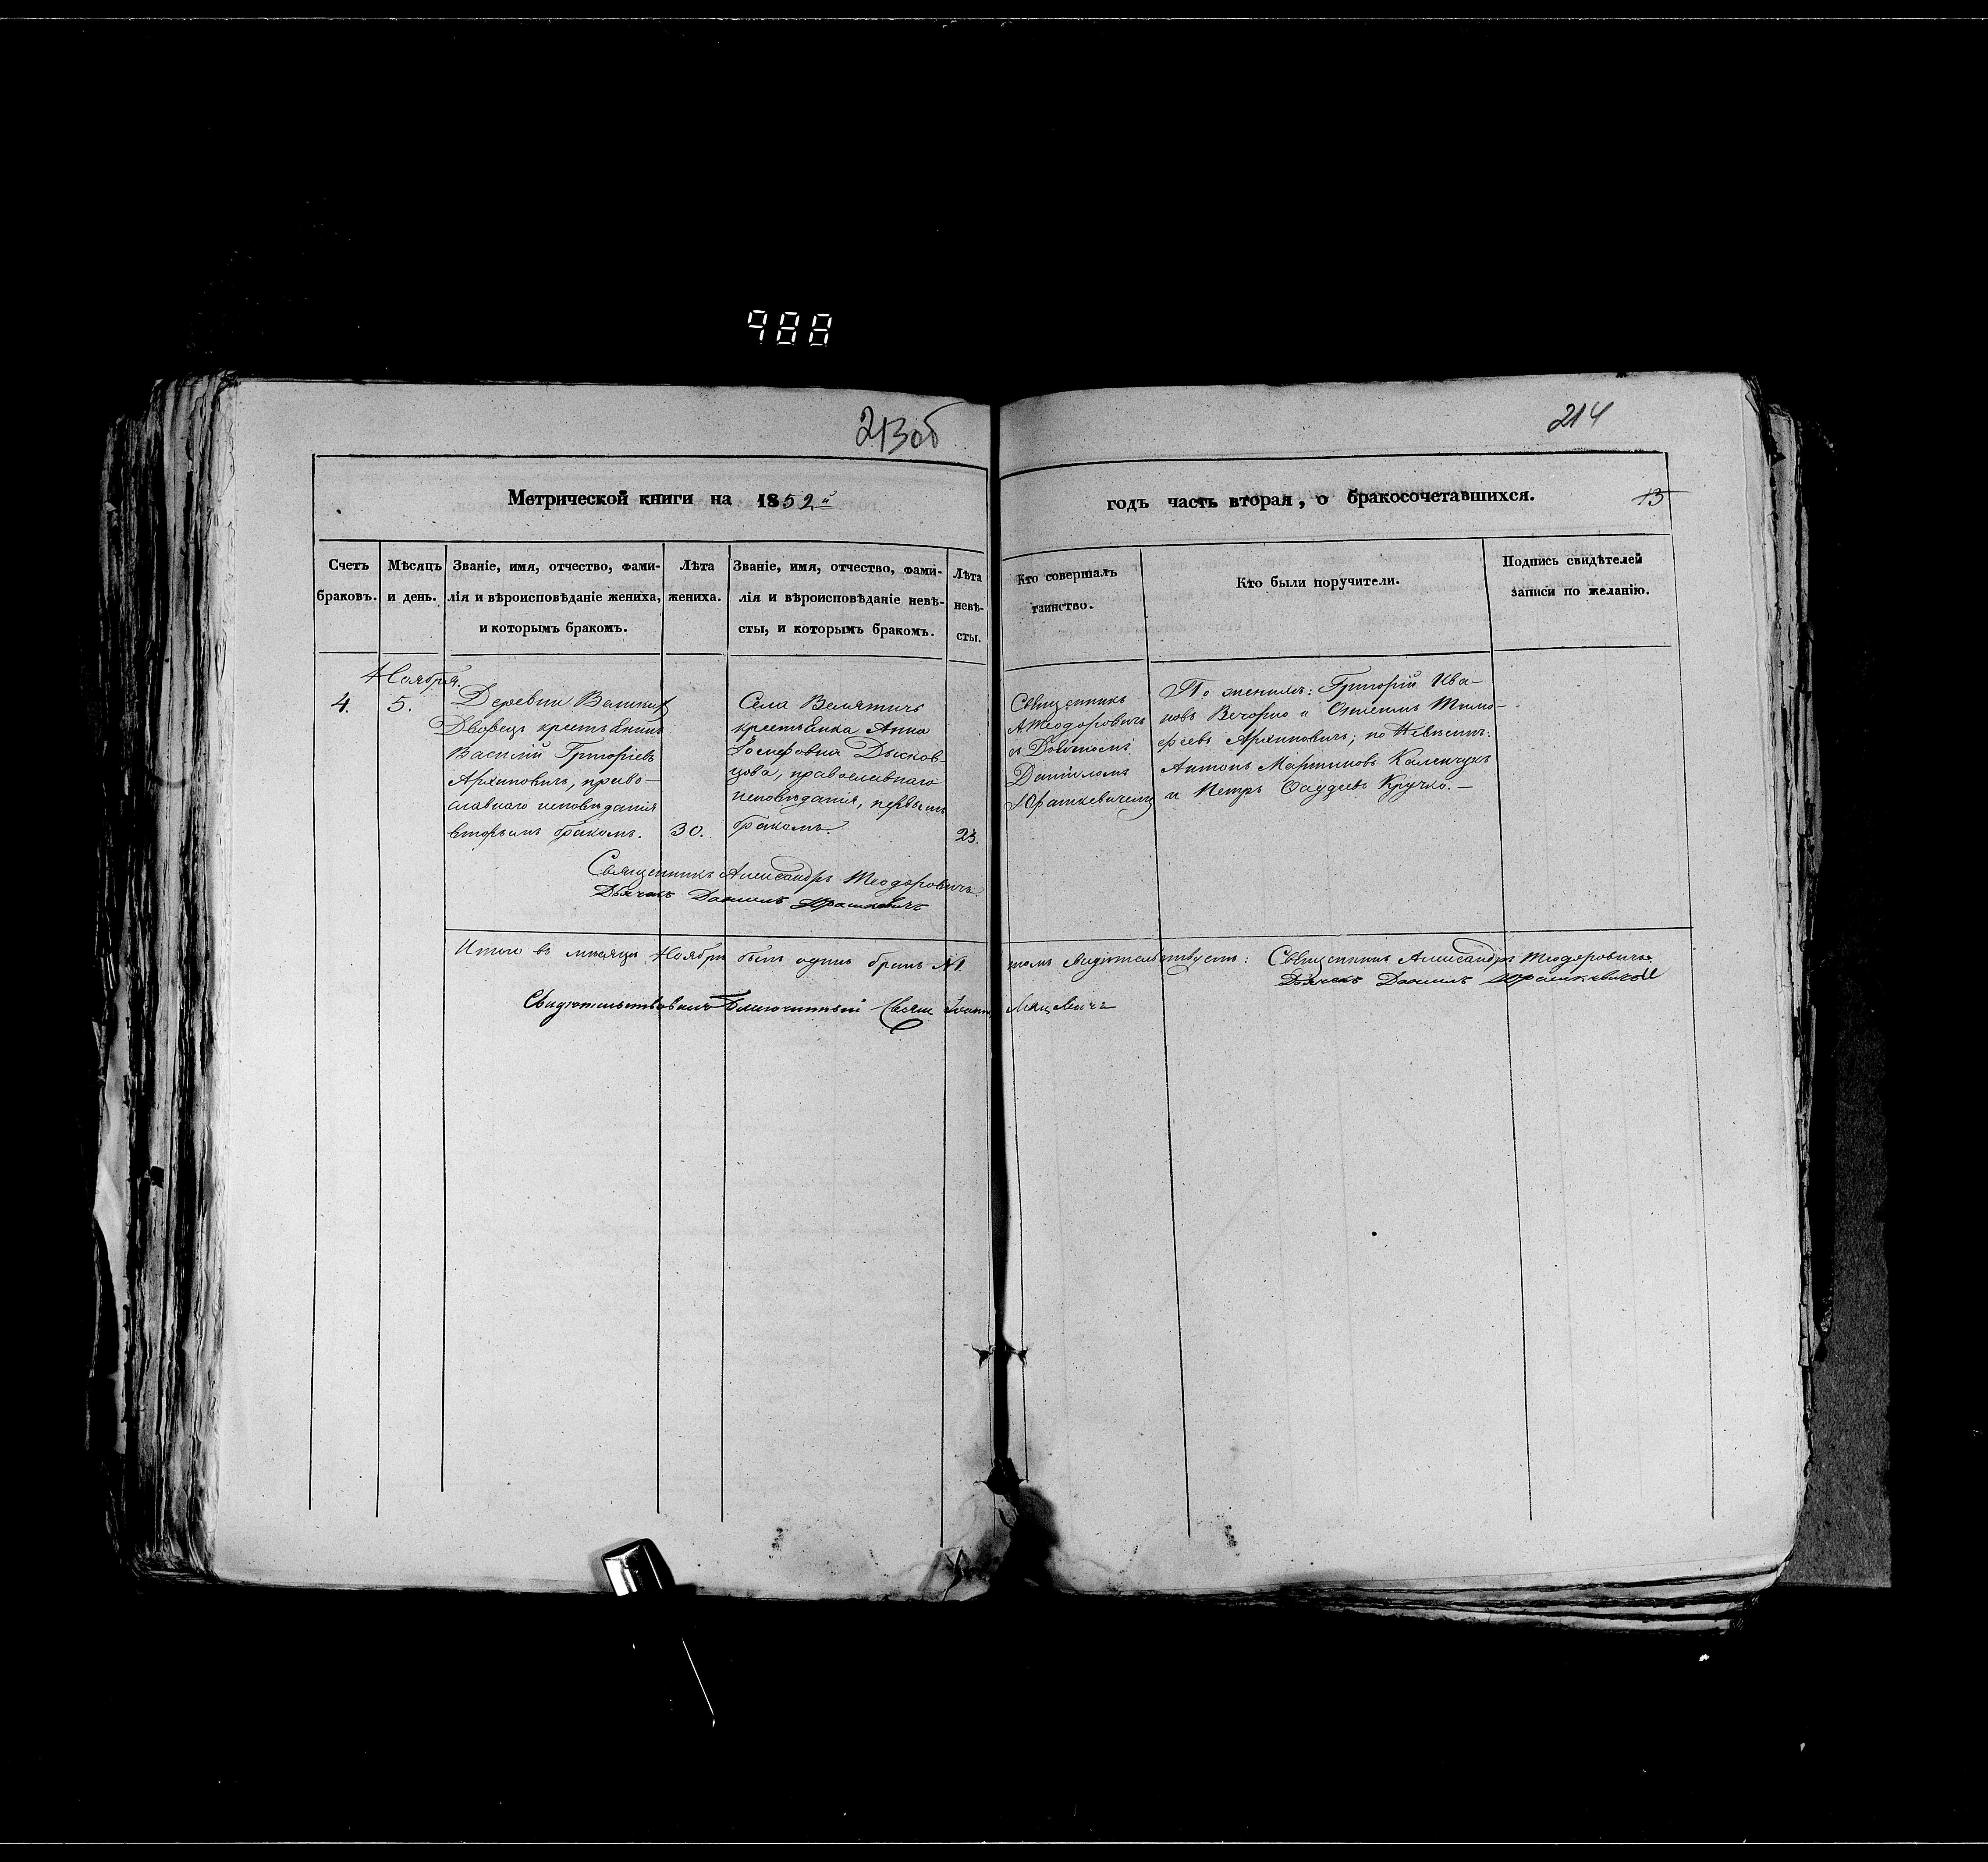 988
213об
214
Метрической книги на 1852й
годъ часть вторая, о бракосочетавшихся.
13
Счетъ
браковъ.
Мѣсяцъ
и день.
Званіе, имя, отчество, фами-
лія и вѣроисповѣданіе жениха,
и которымъ бракомъ.
Лѣта
жениха.
Званіе, имя, отчество, фами-
лія и вѣроисповѣданіе невѣ-
сты, и которымъ бракомъ.
Лѣта
невѣ-
сты.
Кто совершалъ
таинство.
Кто были поручители.
Подпись свидѣтелей
записи по желанію.
Ноября.
4.
5.
Деревни
Дворецъ крестьянинъ
Василій Григоріевъ
Архиповичъ, право-
славнаго исповѣданія
вторымъ бракомъ.
30.
Села Велятичъ
крестьянка Анна
Іосифовна Дысков-
цова, православнаго
исповѣданія, первымъ
бракомъ.
23.
Священникъ
А. Теодоровичъ
съ
Даніиломъ
Юрашкевичемъ
По женихѣ: Григорій Ива-
новъ Вечорко и Тимо-
феевъ Архиповичъ; по Невѣстѣ:
Антонъ Мартиновъ Каленчукъ
и Петръ Фаддеевъ Кручко.—
Священникъ Александръ Теодоровичъ
Дьячекъ Даніилъ Юрашкевичъ
Итого въ мѣсяцѣ Ноябрѣ былъ одинъ бракъ №1 томъ свидѣтельствуетъ: Священникъ Александръ Теодоровичъ
Дьячекъ Даніилъ Юрашкевичъ
Свидѣтельствовалъ Благочинный Свящ Іоаннъ Мацкевичъ